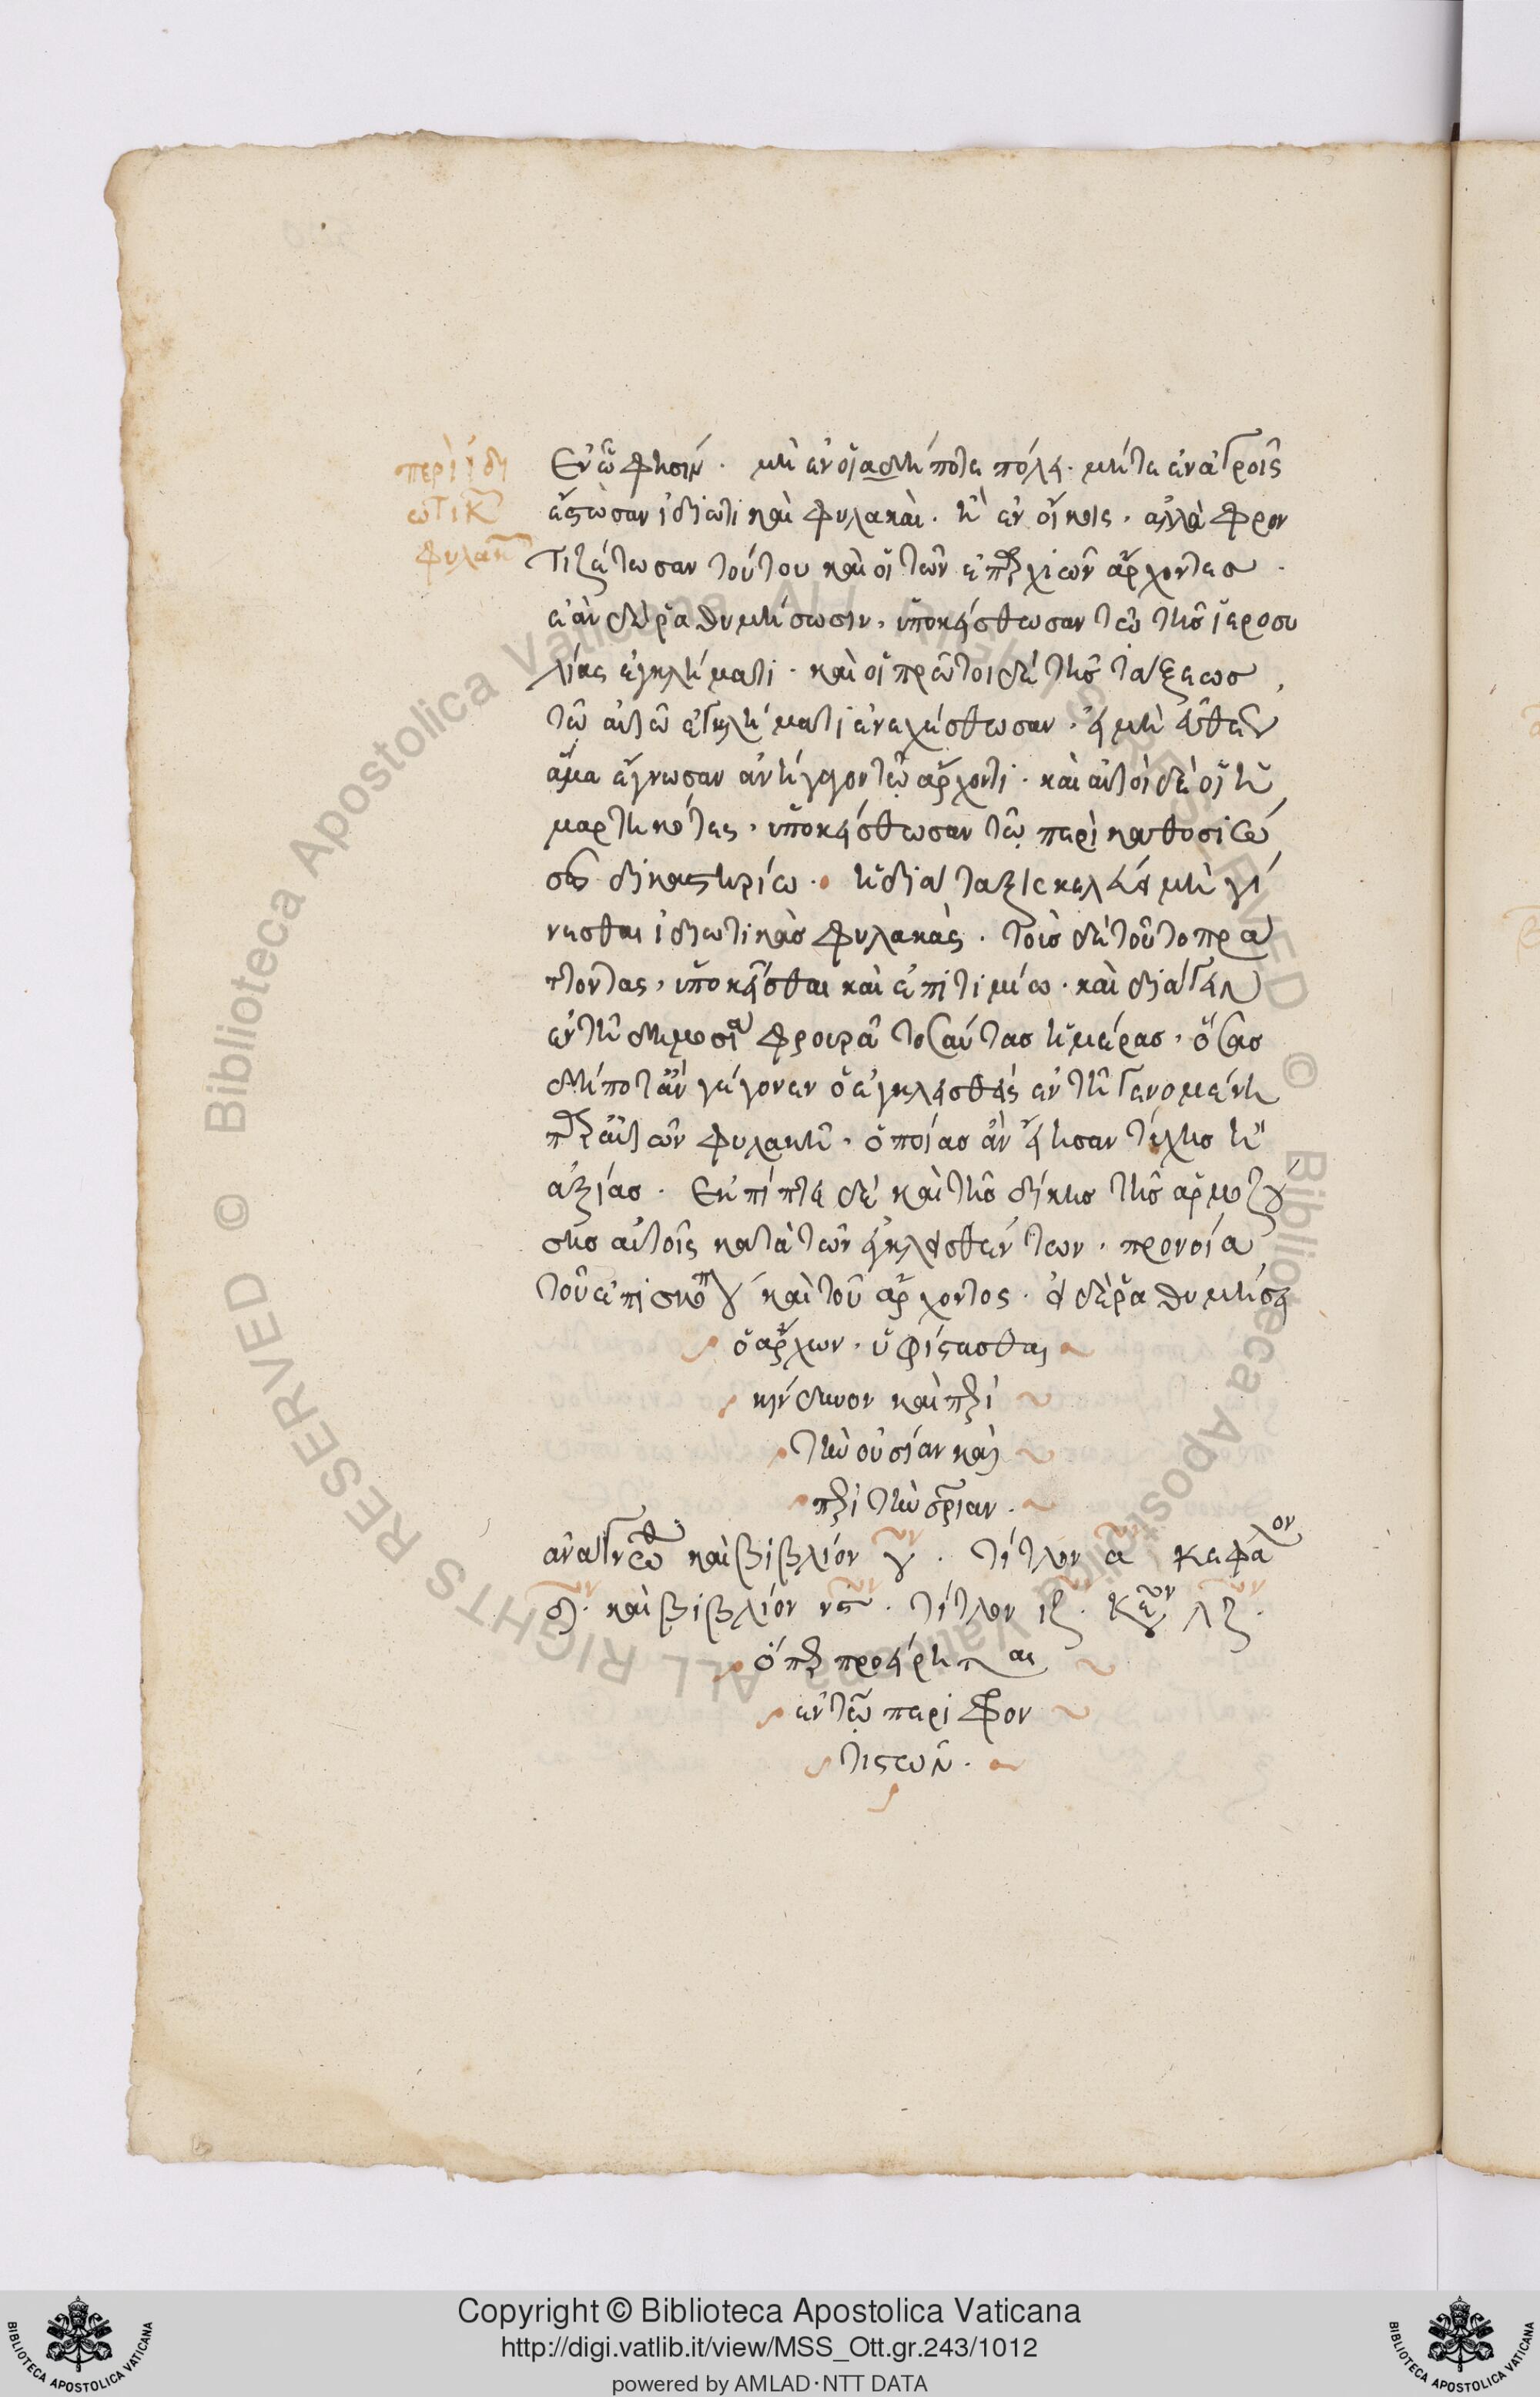 περὶ ἰδι
ωτικ
φυλακ
Ἐν ᾧ φησὶν. μὴ ἐν οἱαδήποτε πόλει. μήτε ἐν ἀγροῖς
ἔστωσαν ἰδιωτικαὶ φυλακαὶ. ἢ ἐν οἴκοις. ἀλλὰ φρον
τιζέτωσαν τούτου καὶ οἱ τῶν ἐπαρχιῶν ἄρχοντες.
ἐὰν δὲ ῥαθυμήσωσιν, ὑποκείσθωσαν τῶ τῆς ἱεροσυ
λίας ἐγκλήματι. καὶ οἱ πρῶτοι δὲ τῆς τάξεως,
τῶ αὐτῶ ἐγκλήματι ἐνεχέσθωσαν. εἰ μὴ εὐθὺς
ἅμα ἔγνωσαν ἀνήγαγον τῷ ἄρχοντι. καὶ αὐτοὶ δὲ οἱ ἡ
μαρτηκότες, ὑποκείσθωσαν τῷ περὶ καθοσιώ
σεως δικαστηρίω. ἡ διάταξις κελεύει μὴ γί
νεσθαι ἰδιωτικὰς φυλακάς. τοὺς δὲ τοῦτο πρά
ττοντας, ὑποκεῖσθαι καὶ ἐπιτιμίω. καὶ διάγειν
ἐν τῆ δημοσία φρουρᾶ τοσαύτας ἡμέρας, ὅσας
δήποτ' ἂν γέγονεν ὁ ἐγκλεισθεὶς ἐν τῆ γενομένη
παρ' αὐτῶν φυλακῆ, ὁποίας ἂν εἴησαν τύχης ἢ
ἀξίας. Ἐκπίπτει δὲ καὶ τῆς δίκης τῆς ἁρμοζού
σης αὐτοῖς κατὰ τῶν ἐγκλεισθέντων. προνοία
τοῦ ἐπισκόπου καὶ τοῦ ἄρχοντος. εἰ δὲ ῥαθυμήσει
ὁ ἄρχων. ὑφίστασθαι
κίνδυνον καὶ περὶ
τὴν οὐσίαν καὶ
περὶ τὴν σωτηρίαν.
ἀνάγνωθι καὶ βιβλίον γ. τίτλον α κεφάλαιον
καὶ βιβλίον νϛ. τίτλον ιζ. Κεφ λζ.
ὅπερ προείρηται
ἐν τῷ περὶ φρον
τιστῶν.
Copyright © Biblioteca Apostolica Vaticana
http://digi.vatlib.it/view/MSS_Ott.gr.243/1012
powered by AMLAD·NTT DATA